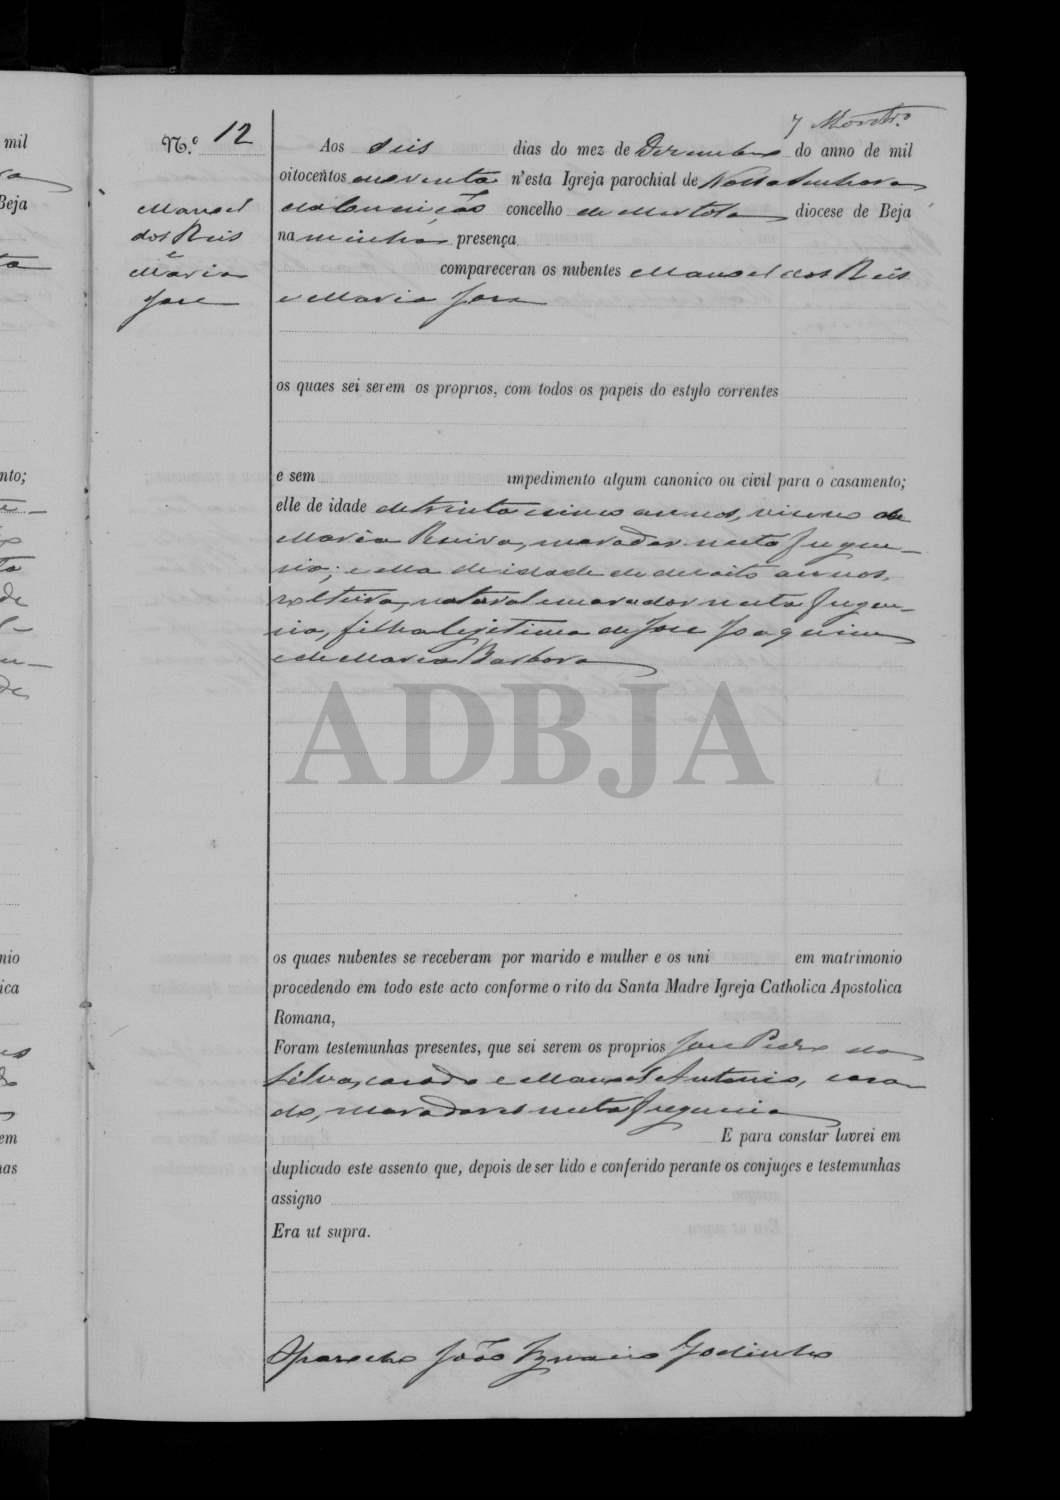 7 Monteiro
N.º 12
Aos seis dias do mez de Dezembro do anno de mil
oitocentos noventa n'esta Igreja parochial de Nossa Senhora
da Conceição concelho de Mertola diocese de Beja
na minha presença
compareceran os nubentes Manoel dos Reis
e Maria Jose
Manoel
dos Reis
e
Maria
Jose
os quaes sei serem os proprios, com todos os papeis do estylo correntes
e sem impedimento algum canonico ou civil para o casamento;
elle de idade de trinta cinco annos, viuvo de
Maria Ruiva, morador nesta fregue-
sia; e ella de idade de desoito annos,
solteira, natural e morador nesta fregue-
sia, filha legitima de Jose Joaquim
e de Maria Barbora
ADBJA
os quaes nubentes se receberam por marido e mulher e os uni em matrimonio
procedendo em todo este acto conforme o rito da Santa Madre Igreja Catholica Apostolica
Romana,
Foram testemunhas presentes, que sei serem os proprios Jose Pedro da
Silva, casado e Manoel Antonio, casa-
do, moradores nesta freguesia
E para constar lavrei em
duplicado este assento que, depois de ser lido e conferido perante os conjuges e testemunhas
assigno
Era ut supra.
O parocho João Ignacio Godinho
mil
Beja
nto;
nio
ica
em
has